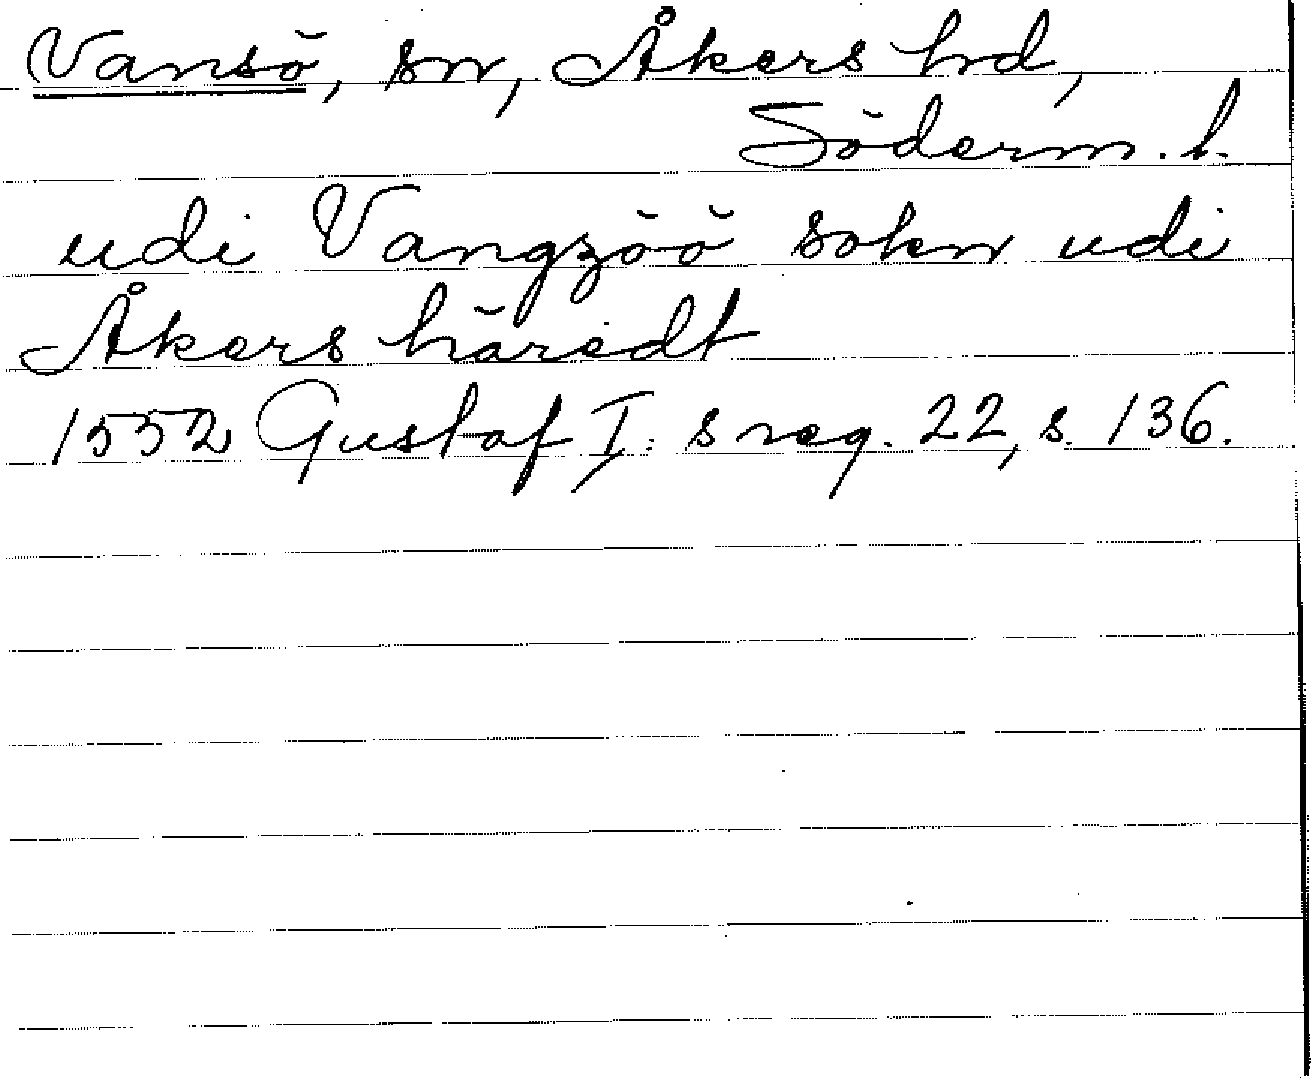 Vansö, sn, Åkers hd,
Söderm. l.
udi Vangzöö sokn udi
Åkers häredt
1552 Gustaf I:s reg. 22, s. 136.